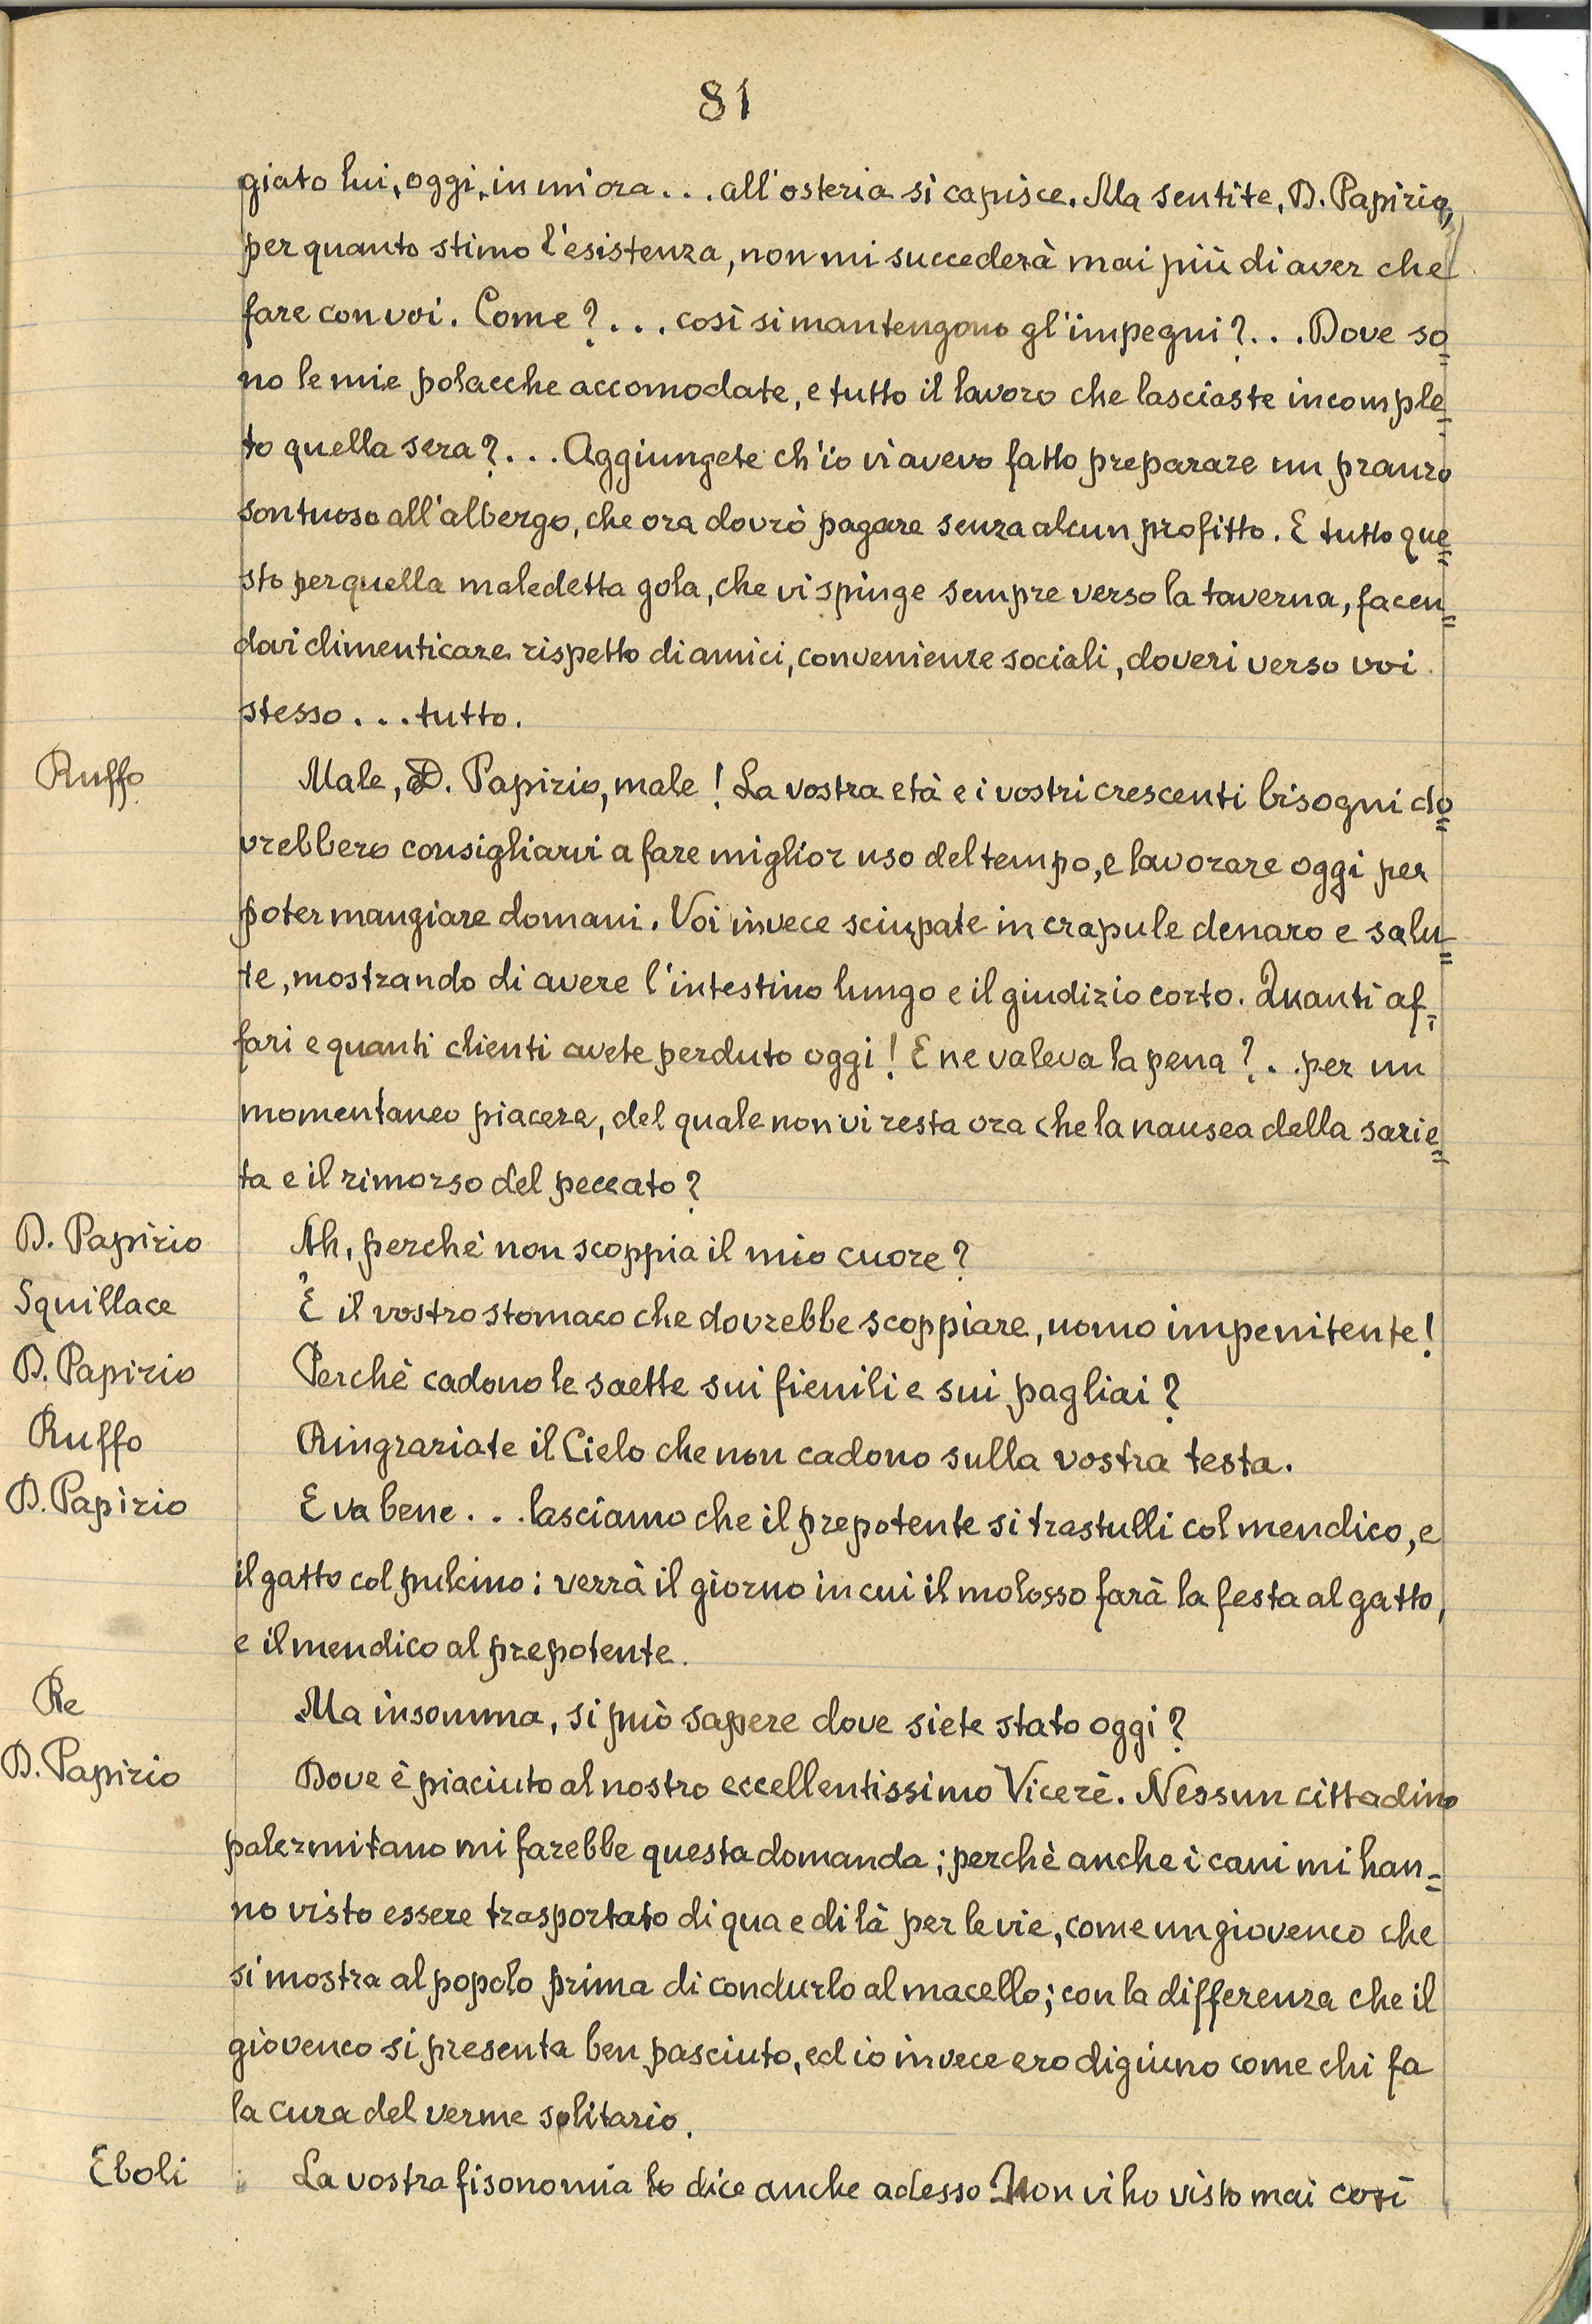 81
giato lui, oggi, in un'ora... all'osteria si capisce. Ma sentite, D. Papirio,
per quanto stimo l'esistenza, non mi succederà mai più di aver che
fare con voi. Come?... così si mantengono gl'impegni?... Dove so=
no le mie polacche accomodate, e tutto il lavoro che lasciaste incomple=
to quella sera?... Aggiungete ch'io vi avevo fatto preparare un pranzo
sontuoso all'albergo, che ora dovrò pagare senza alcun profitto. E tutto que=
sto per quella maledetta gola, che vi spinge sempre verso la taverna, facen=
dovi dimenticare rispetto di amici, convenienze sociali, doveri verso voi
stesso... tutto.
Ruffo Male, D. Papirio, male! La vostra età e i vostri crescenti bisogni do=
vrebbero consigliarvi a fare miglior uso del tempo, e lavorare oggi per
poter mangiare domani. Voi invece sciupate in crapule denaro e salu=
te, mostrando di avere l'intestino lungo e il giudizio corto. Quanti af=
fari e quanti clienti avete perduto oggi! E ne valeva la pena?.. per un
momentaneo piacere, del quale non vi resta ora che la nausea della sazie=
ta e il rimorso del peccato?
D. Papirio Ah, perchè non scoppia il mio cuore?
Squillace È il vostro stomaco che dovrebbe scoppiare, uomo impenitente!
D. Papirio Perchè cadono le saette sui fienili e sui pagliai?
Ruffo Ringraziate il Cielo che non cadono sulla vostra testa.
D. Papirio E va bene... lasciamo che il prepotente si trastulli col mendico, e
il gatto col pulcino: verrà il giorno in cui il molosso farà la festa al gatto,
e il mendico al prepotente.
Re Ma insomma, si può sapere dove siete stato oggi?
D. Papirio Dove è piaciuto al nostro eccellentissimo Vicerè. Nessun cittadino
palermitano mi farebbe questa domanda; perchè anche i cani mi han=
no visto essere trasportato di qua e di là per le vie, come un giovenco che
si mostra al popolo prima di condurlo al macello; con la differenza che il
giovenco si presenta ben pasciuto, ed io invece ero digiuno come chi fa
la cura del verme solitario.
Eboli La vostra fisonomia lo dice anche adesso. Non vi ho visto mai così